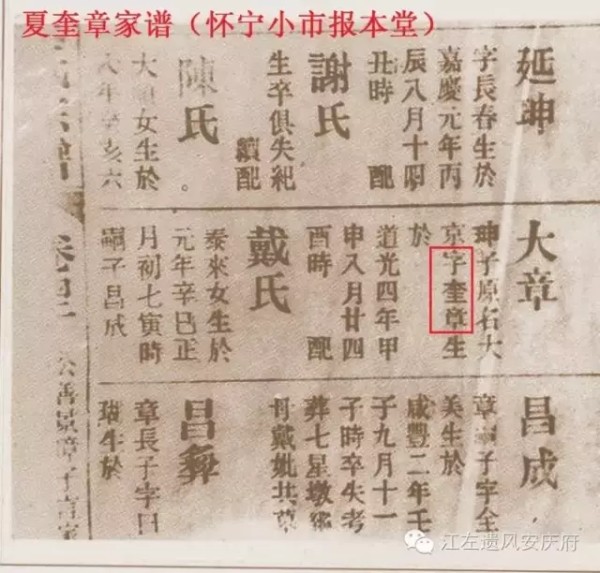 夏奎章家谱（怀宁小市报本堂）
延珅
字長春生於
嘉慶元年丙
辰八月十
丑時 配
謝氏
生卒俱失紀
續配
陳氏
大 女生於
年 亥六
大章
珅子原名大
京字奎章生
於
道光四年甲
申八月廿四
酉時 配
戴氏
泰來女生於
元年辛巳正
月初七寅時
嗣子昌成
昌成
章嗣子字全
美生於
咸豐二年壬
子九月十一
子時卒失考
葬七星墩
母戴妣共
昌彝
章長子字
生於
卷
江左遗风安庆府